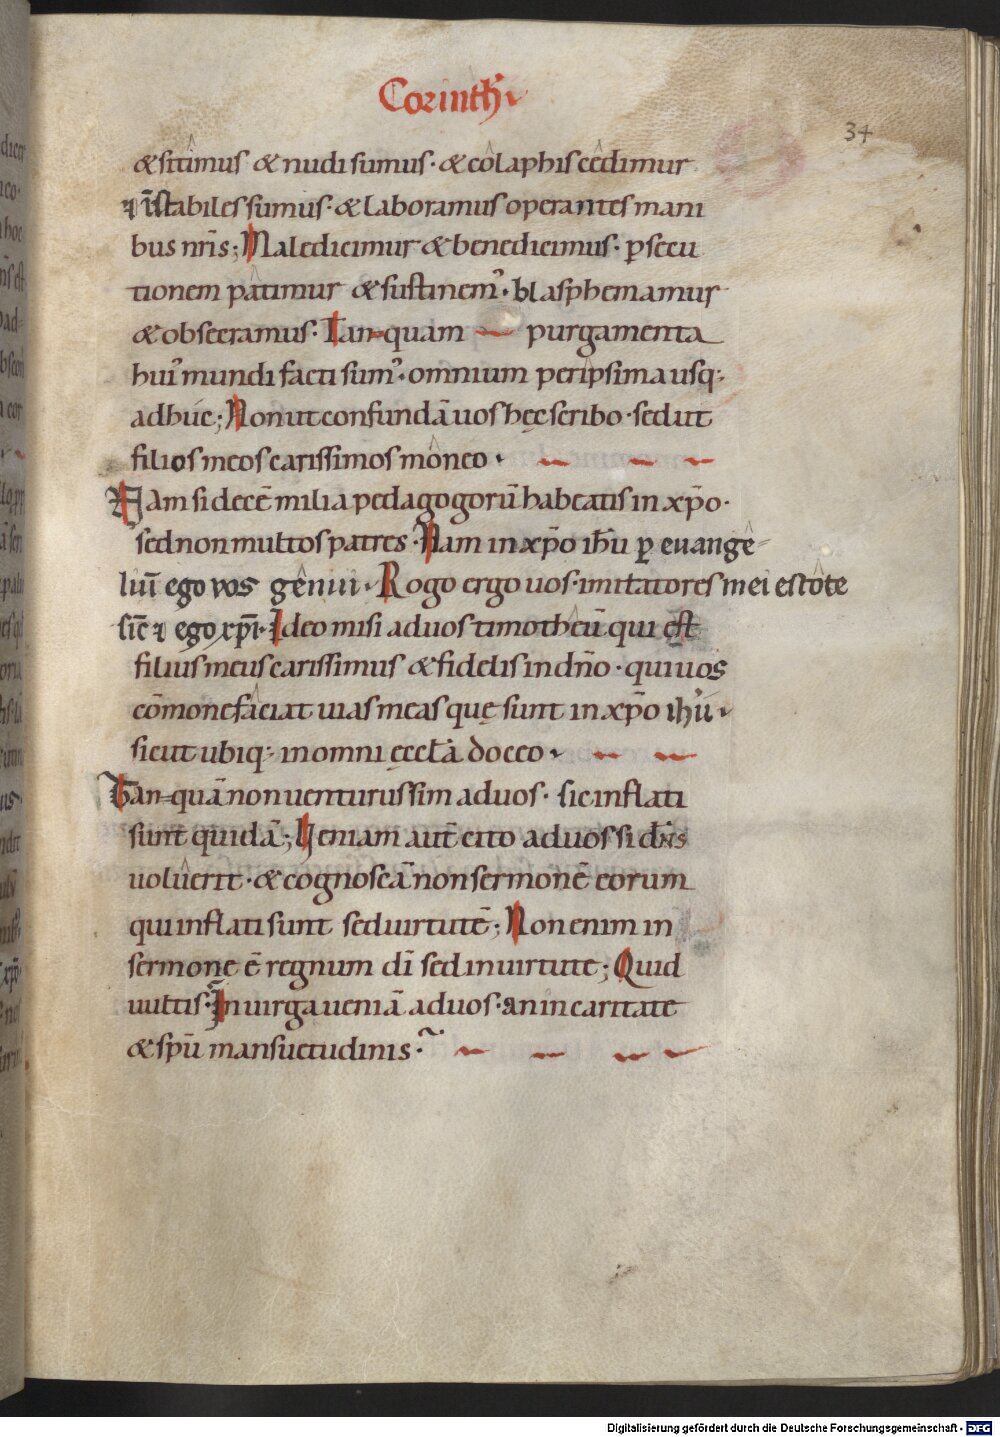 Corinth̄
34
& sitîmus & nudi sumus · & colaphis cędimur
⁊ īstabiles sumus · & laboramus operantes mani
bus nr̄is ; Maledicimur & benedicimus · ꝑsecu
tionem pâtimur & sustinem᾿ · blasphemamur
& obsecramus · Tan-quam purgamenta
hui᾿ mundi facti sum᾿ · omnium peripsima usq;
adhúc ; Non ut confundā uos hęc scribo · sed ut
filios meos carissimos môneo ·
Nam si decē milia pedagogorū habeatis in xp̄o ·
sed non multos patres · Nam in xp̄o ih̄u ꝑ euangê
liū ego vos gênui · Rogo ergo uos · imitatores mei estôte
sic̄ ⁊ ego xp̄i · Ideo misi ad uos timothêū qui est
filius meus carissimus & fidelis in dn̄o · qui uos
cōmonefâciat uias meas quę sunt in xp̄o ih̄u ·
sicut ubiq; in omni ęccl̄a doceo ·
Tan-quā non uenturus sim ad uos · sic inflati
sunt quidā ; Ueniam aut̄ cito ad uos si dn̄s
uolûerit · & cognoscā non sermonē eorum
qui inflati sunt sed uirtutē ; Non enim in
sermone ē regnum dī sed in uirtute ; Quid
uultis · In uirga ueniā ad uos · an in caritate
& spū mansuetudinis ·
Digitalisierung gefördert durch die Deutsche Forschungsgemeinschaft - DFG